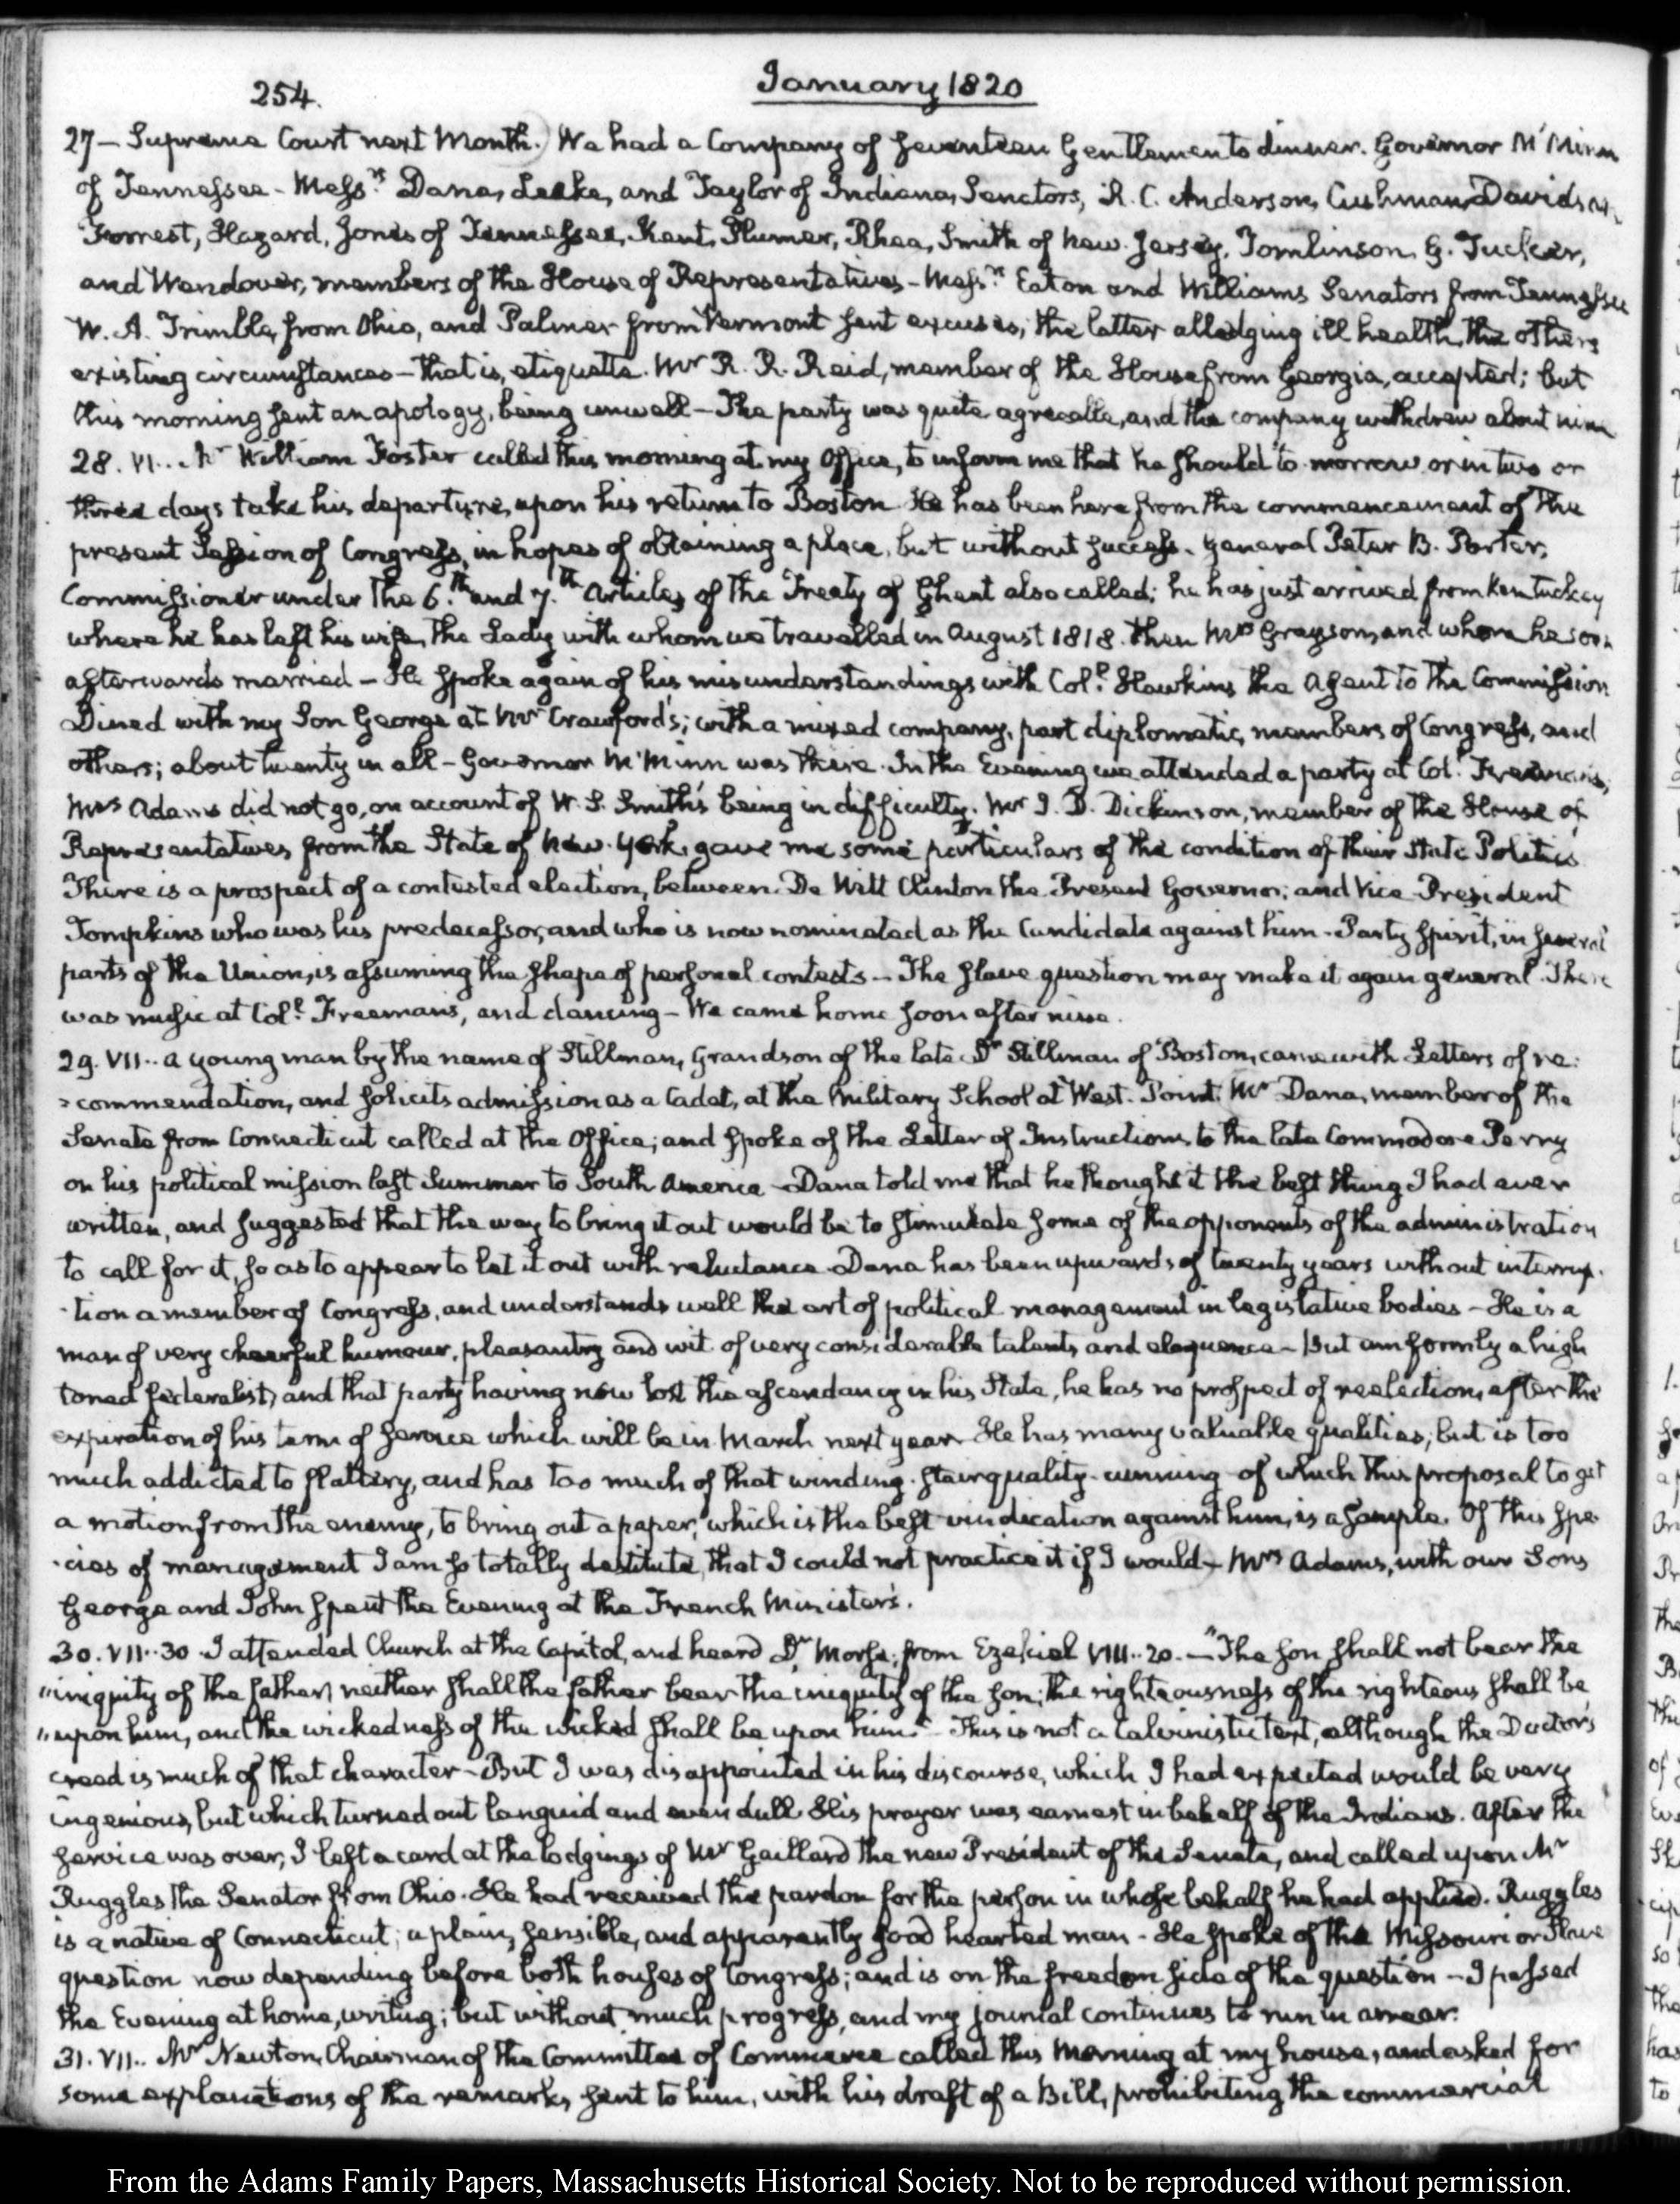 254.
January 1820
27 — Supreme Court next Month. We had a Company of seventeen Gentlemen to dinner. Governor M'Minn
of Tennessee - Mess.rs Dana, Leake, and Taylor of Indiana, Senators, R. C. Anderson, Cushman, Davidson,
Forrest, Hazard, Jones of Tennessee, Kent, Plumer, Rhea, Smith of New-Jersey, Tomlinson, G. Tucker,
and Wendover, members of the House of Representatives - Mess.rs Eaton and Williams Senators from Tennessee
W. A. Trimble, from Ohio, and Palmer from Vermont sent excuses, the latter alledging ill health, the others
existing circumstances — that is, etiquette. Mr R. R. Reid, member of the House from Georgia, accepted; but
this morning sent an apology, being unwell — The party was quite agreeable, and the company withdrew about nine
28. VI.. Mr William Foster called this morning at my Office, to inform me that he should to-morrow or in two or
three days take his departure, upon his return to Boston He has been here from the commencement of the
present Session of Congress, in hopes of obtaining a place, but without success. General Peter B. Porter,
Commissioner under the 6.th and 7.th Articles of the Treaty of Ghent also called; he has just arrived from Kentuckey
where he has left his wife, the Lady with whom we travelled in August 1818. then Mrs Grayson, and whom he soon
afterwards married — He spoke again of his misunderstandings with Col.l Hawkins the Agent to the Commission
Dined with my Son George at Mr Crawford's; with a mixed company, part diplomatic, members of Congress, and
others; about twenty in all — Governor M'Minn was there. In the Evening we attended a party at Col.l Freeman's,
Mrs Adams did not go, on account of W. S. Smith's being in difficulty. Mr J. D. Dickinson, member of the House of
Representatives from the State of New-York, gave me some particulars of the condition of their State Politics
There is a prospect of a contested election, between De Witt Clinton the Present Governor; and Vice-President
Tompkins who was his predecessor, and who is now nominated as the Candidate against him - Party Spirit, in several
parts of the Union, is assuming the shape of personal contests — The slave question may make it again general. There
was music at Col.l Freeman's, and dancing — We came home soon after nine.
29. VII.. A young man by the name of Stillman, Grandson of the late Dr Stillman of Boston, came with Letters of re:
:commendation, and solicits admission as a Cadet, at the Military School at West-Point. Mr Dana, member of the
Senate from Connecticut called at the Office; and spoke of the Letter of Instructions to the late Commodore Perry
on his political mission last Summer to South America - Dana told me that he thought it the best thing I had ever
written, and suggested that the way to bring it out would be to stimulate some of the opponents of the administration
to call for it, so as to appear to let it out with reluctance. Dana has been upwards of twenty years without interrup-
-tion a member of Congress, and understands well the art of political management in legislative bodies — He is a
man of very cheerful humour, pleasantry and wit. of very considerable talents and eloquence - But uniformly a high
toned federalist, and that party having now lost the ascendancy in his State, he has no prospect of reelection, after the
expiration of his term of service which will be in March next year He has many valuable qualities; but is too
much addicted to flattery, and has too much of that winding-stair quality-cunning of which this proposal to get
a motion from the enemy, to bring out a paper, which is the best vindication against him, is a sample. Of this spe-
-cies of management I am so totally destitute, that I could not practice it if I would — Mrs Adams, with our Sons
George and John spent the Evening at the French Minister's.
30. VII..30 I attended Church at the Capitol, and heard Dr Morse, from Ezekiel VIII..20. — "The son shall not bear the
"iniquity of the father, neither shall the father bear the iniquity of the son; the righteousness of the righteous shall be
"upon him, and the wickedness of the wicked shall be upon him." This is not a Calvinistic text, although the Doctor's
creed is much of that character - But I was disappointed in his discourse, which I had expected would be very
ingenious, but which turned out languid and even dull. His prayer was earnest in behalf of the Indians. After the
service was over, I left a card at the lodgings of Mr Gaillard the new President of the Senate, and called upon Mr
Ruggles the Senator from Ohio. He had received the pardon for the person in whose behalf he had applied. Ruggles
is a native of Connecticut; a plain, sensible, and apparently good hearted man - He spoke of the Missouri or Slave
question now depending before both houses of Congress; and is on the freedom side of the question — I passed
the Evening at home, writing; but without much progress, and my journal continues to run in arrear.
31. VII.. Mr Newton, Chairman of the Committee of Commerce called this Morning at my house, and asked for
some explanations of the remarks sent to him, with his draft of a Bill, prohibiting the commercial
From the Adams Family Papers, Massachusetts Historical Society. Not to be reproduced without permission.